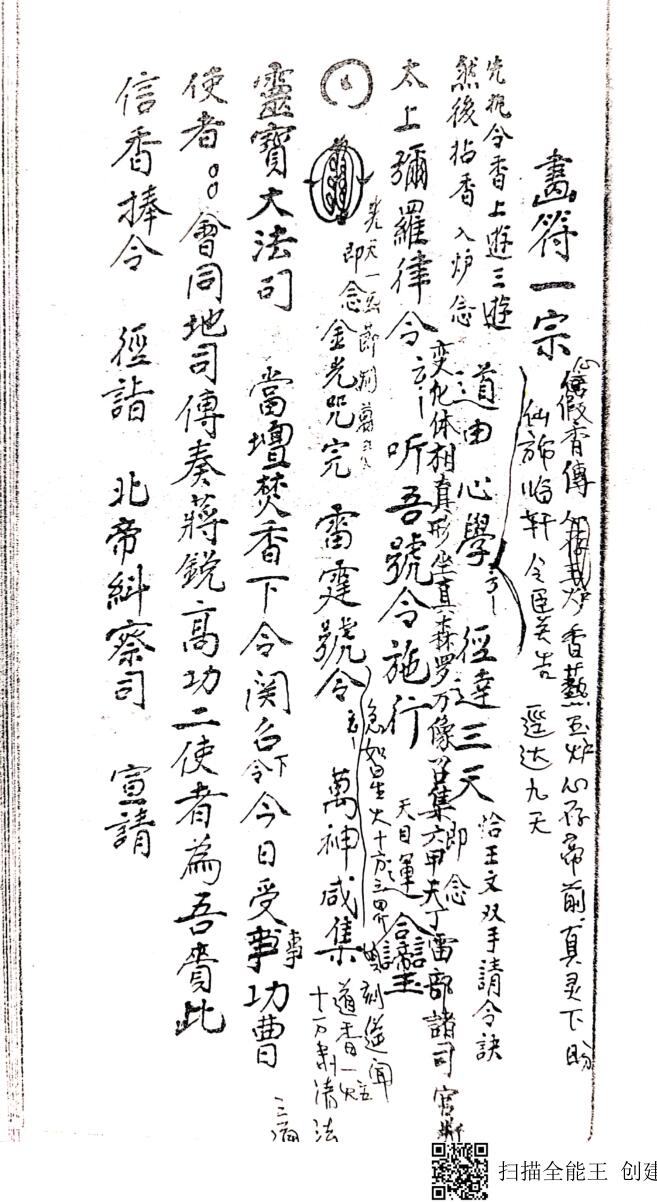 畫符一宗
心假香傳 香爇玉炉 心存帝前 真灵下盼
仙旆临轩 令臣关告 迳达九天
先执令香上遊三遊
然後拈香入炉念
道由心學 徑達三天 即念
恰王文双手請令訣
变化体相真形 坐真 森罗万像 召集六甲天丁雷部諸司官
太上彌羅律令 听吾號令施行
天目運
即念金光咒完 雷霆號令 萬神咸集
急如星火十方三界 刻遥闻
道香一炷
十方肃清法
靈寶大法司 當壇焚香下令関召 今日受事功曹
下令
事
使者 會同地司傳奏蔣銳高功二使者為吾賫此
三滴
信香捧令 徑詣 北帝糾察司 宣請
扫描全能王 创建